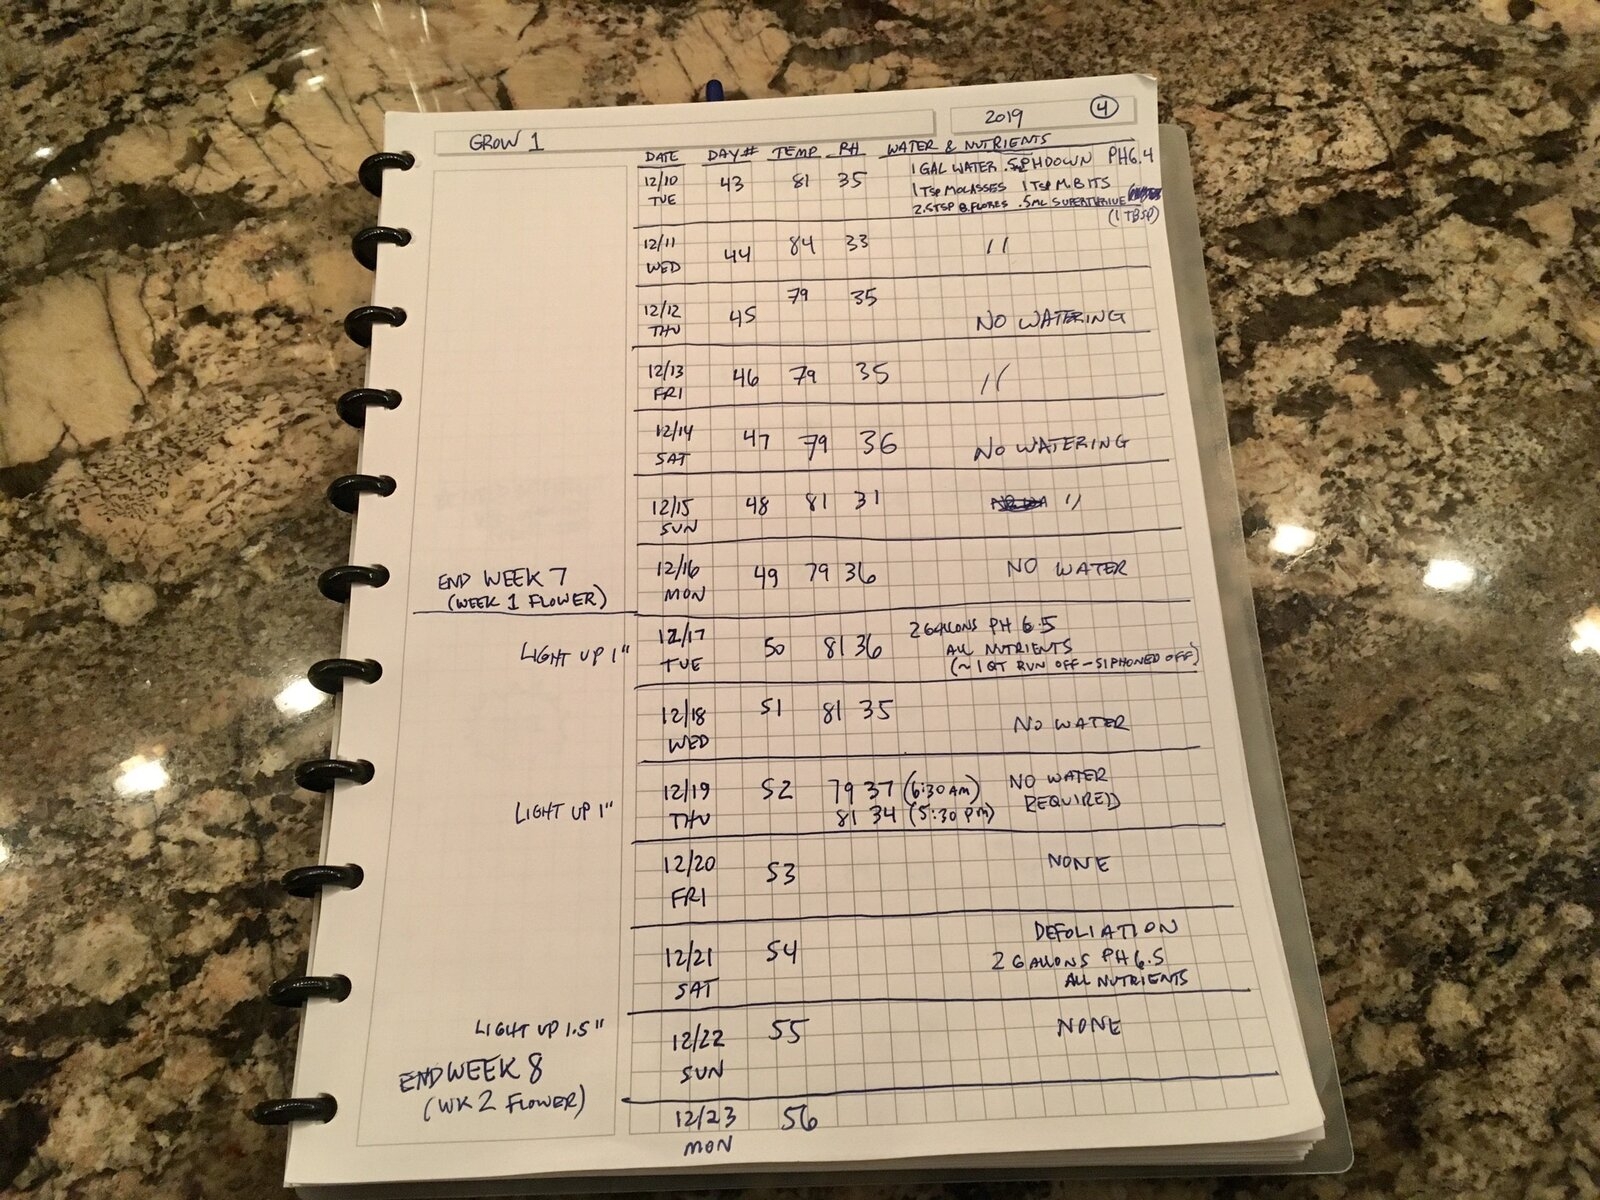 GROW 1
2019 4
DATE DAY # TEMP RH WATER & NUTRIENTS
12/10 TUE 43 81 35
1 GAL WATER PHDOWN PH6.4
1 TSP MOLASSES 1 TSP M.BITS
2.5TSP B.FLORES .5ML SUPERTHRIVE
(1 TBSP)
12/11 WED 44 84 33 //
12/12 THU 45 79 35 NO WATERING
12/13 FRI 46 79 35 //
12/14 SAT 47 79 36 NO WATERING
12/15 SUN 48 81 31 //
END WEEK 7
(WEEK 1 FLOWER)
12/16 MON 49 79 36 NO WATER
LIGHT UP 1"
12/17 TUE 50 81 36
2 GALLONS PH 6.5
ALL NUTRIENTS
(~1 QT RUN OFF - SIPHONED OFF)
12/18 WED 51 81 35 NO WATER
LIGHT UP 1"
12/19 THU 52 79 37 (6:30 AM)
81 34 (5:30 PM)
NO WATER
REQUIRED
12/20 FRI 53 NONE
12/21 SAT 54
DEFOLIATION
2 GALLONS PH 6.5
ALL NUTRIENTS
LIGHT UP 1.5"
12/22 SUN 55 NONE
END WEEK 8
(WK 2 FLOWER)
12/23 MON 56